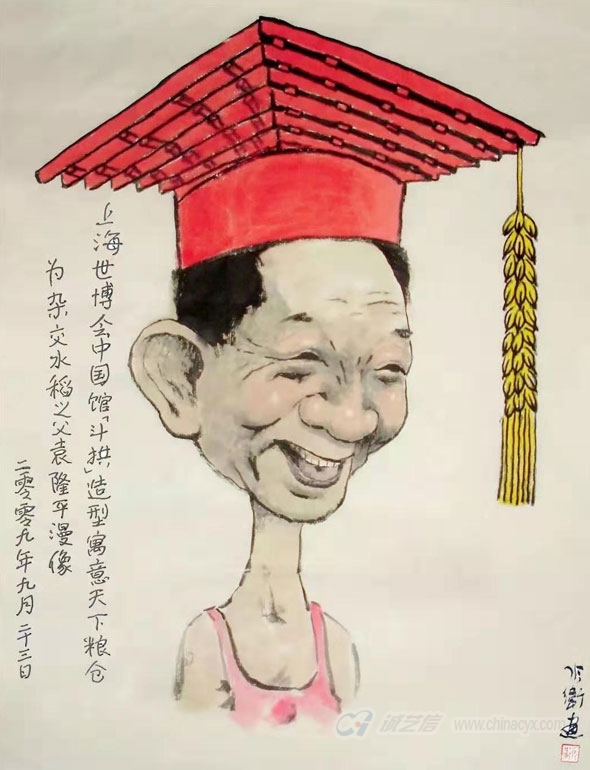 上海世博会中国馆「斗拱」造型寓意天下粮仓
为杂交水稻之父袁隆平漫像
二零零九年九月二十三日
诚艺信 www.chinacyx.com